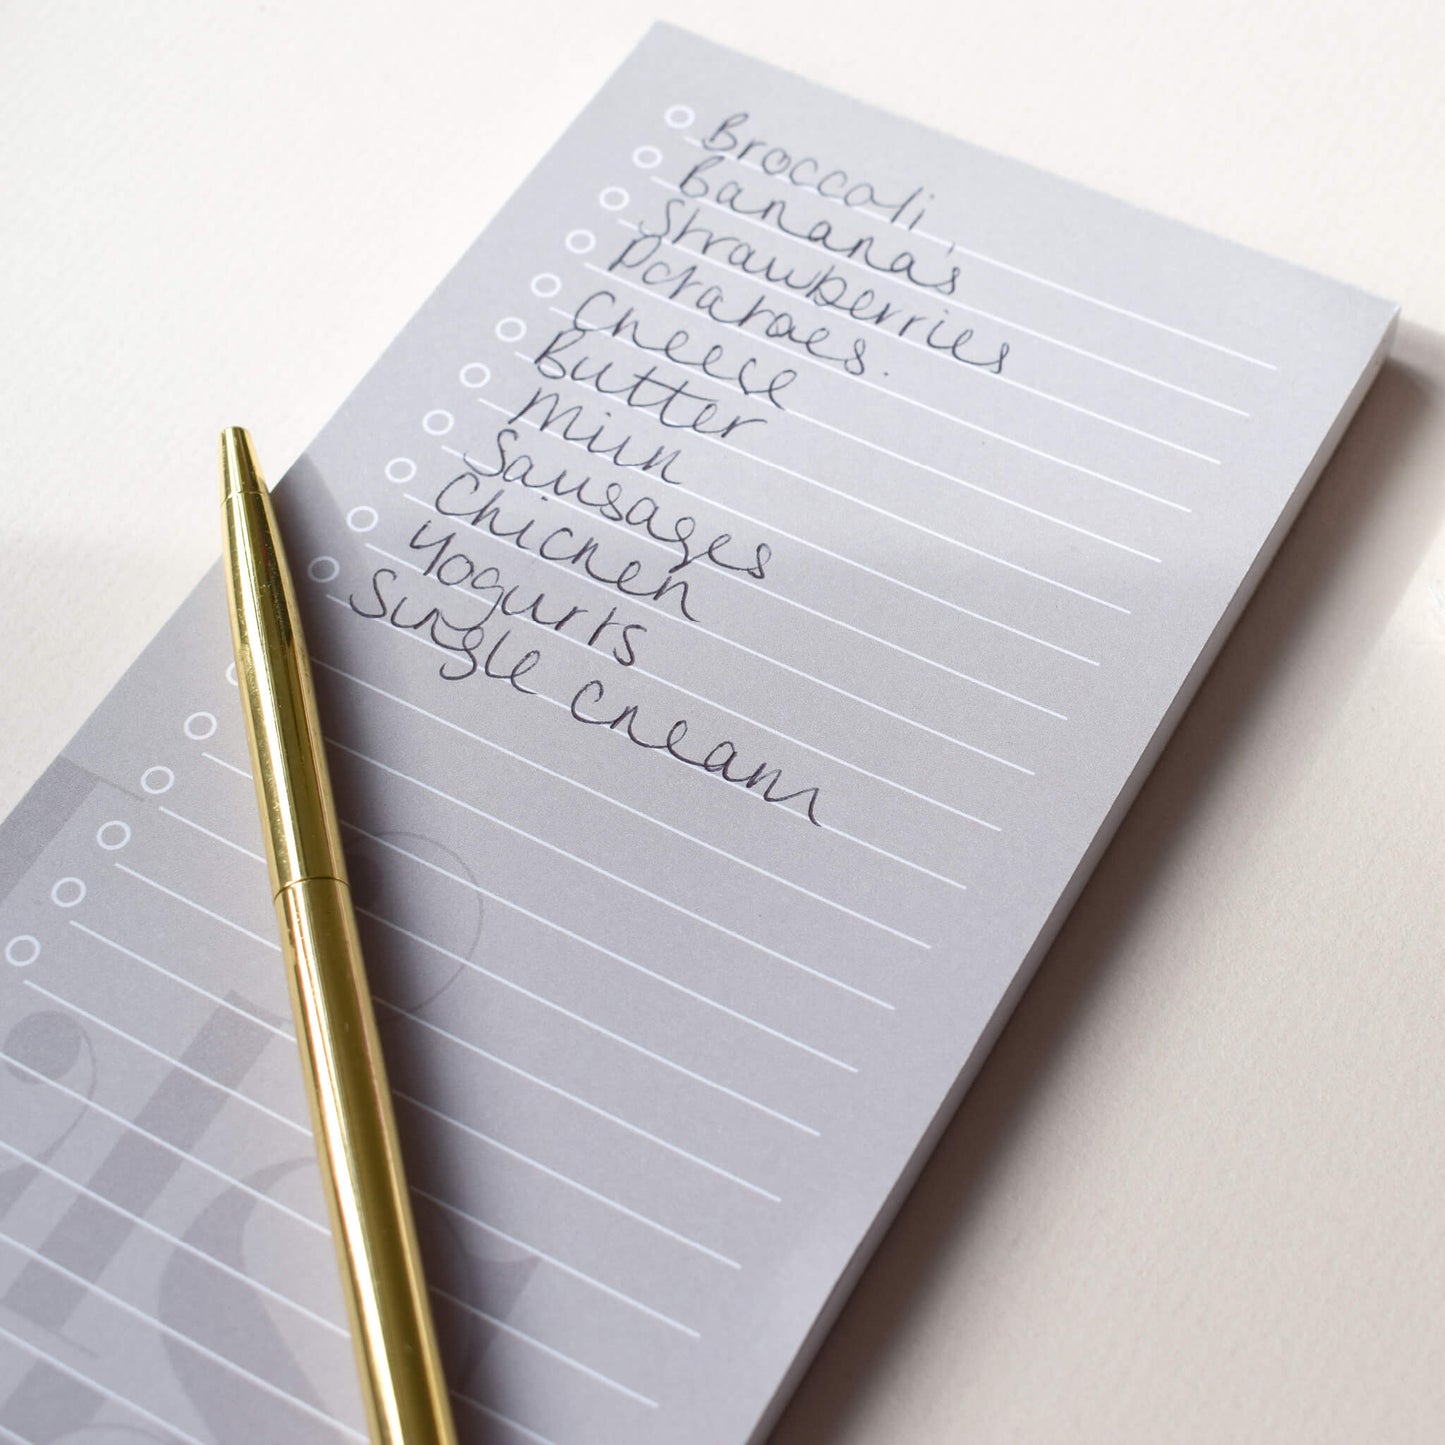 Broccoli
Banana's
Strawberries
Potatoes.
Cheese
Butter
Milk
Sausages
Chicken
Yogurts
Single cream